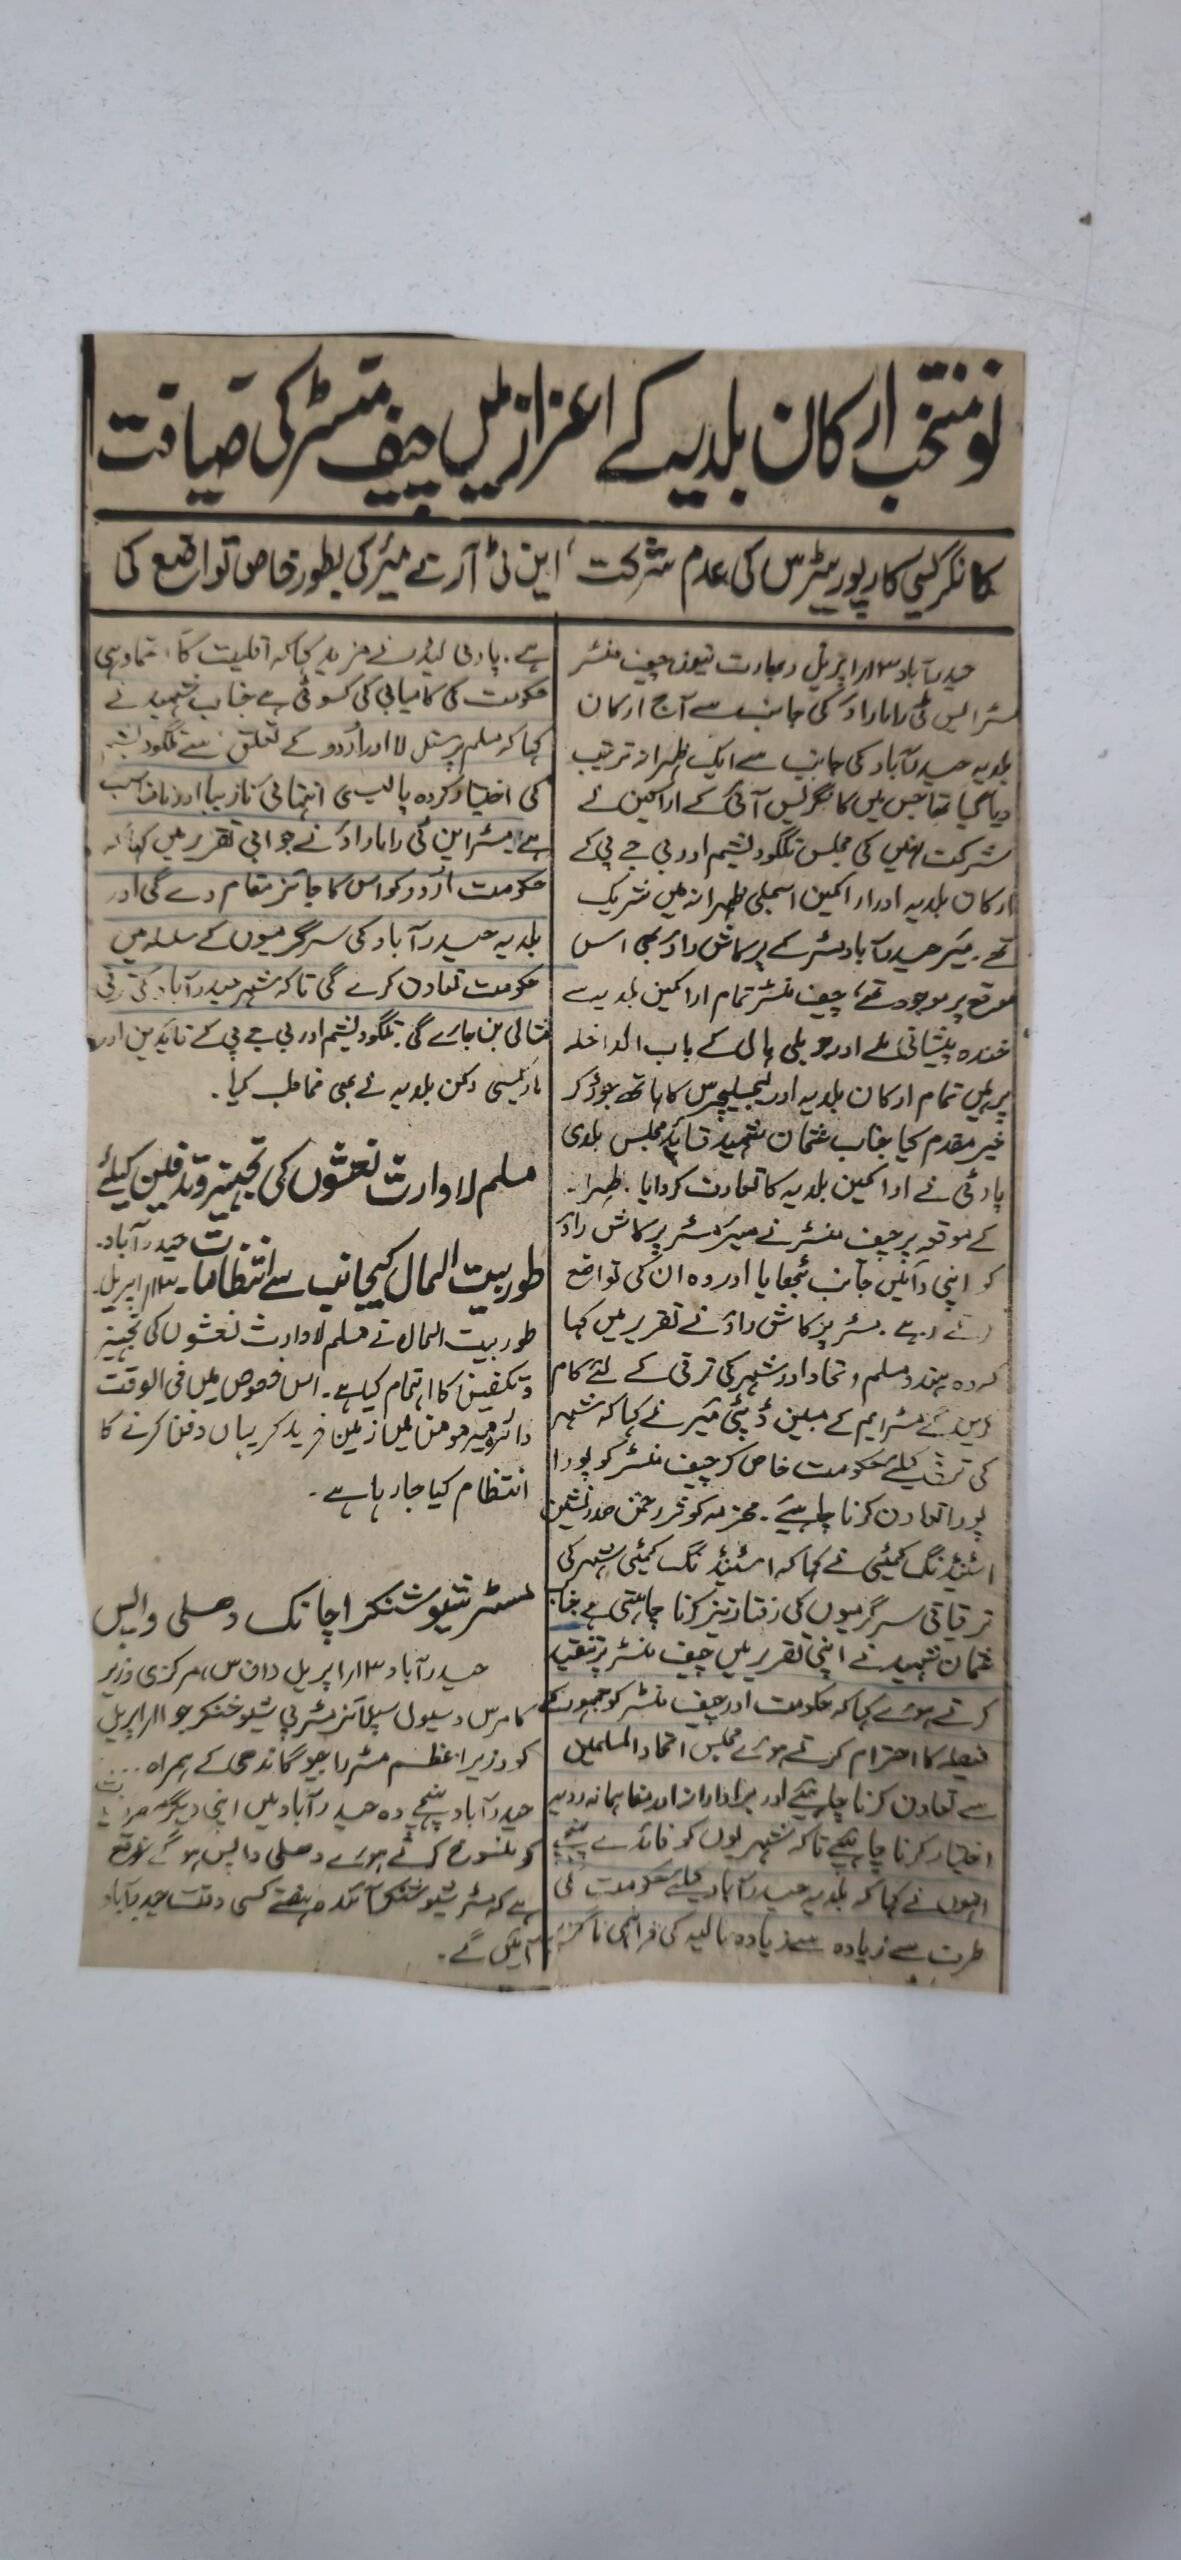 نو منتخب ارکان بلدیہ کے اعزاز میں چیف منسٹر کی ضیافت
کانگریسی کارپوریٹرس کی عدم شرکت ' این ٹی آر نے میئر کی بطور خاص تواضع کی
حیدرآباد ۱۳ اپریل (بھارت نیوز) چیف منسٹر
مسٹر این ٹی راما راؤ کی جانب سے آج ارکان
بلدیہ حیدرآباد کی جانب سے ایک ظہرانہ ترتیب
دیا گیا تھا جس میں کانگریس آئی کے اراکین نے
شرکت نہیں کی مجلس تلگودیشم اور بی جے پی کے
ارکان بلدیہ اور اراکین اسمبلی ظہرانہ میں شریک
تھے۔ میئر حیدرآباد مسٹر کے پرکاش راؤ بھی اس
موقع پر موجود تھے، چیف منسٹر تمام اراکین بلدیہ سے
خندہ پیشانی ملے اور جوبلی ہال کے باب الداخلہ
پر ہیں تمام ارکان بلدیہ اور لیجسلیچرس کا ہاتھ جوڑ کر
خیر مقدم کیا جناب عثمان شہید قائد مجلس بلدی
پارٹی نے اراکین بلدیہ کا تعارف کروایا۔ ظہرا۔۔
کے موقعہ پر چیف منسٹر نے میئر مسٹر پرکاش راؤ
کو اپنی دائیں جانب بٹھایا اور وہ ان کی تواضع
رہے۔ مسٹر پرکاش راؤ نے تقریر میں کہا
کہ وہ ہندو مسلم اتحاد اور شہر کی ترقی کے لئے کام
کریں گے مسٹر ایم کے مبین ڈپٹی میئر نے کہا کہ شہر
کی ترقی کیلئے حکومت خاص کر چیف منسٹر کو پورا
پورا تعاون کرنا چاہیئے۔ محترمہ کوثر رحمٰن صدر نشین
اسٹینڈنگ کمیٹی نے کہا کہ اسٹینڈنگ کمیٹی شہر کی
ترقیاتی سرگرمیوں کی رفتار تیز کرنا چاہتی ہے جناب
عثمان شہید نے اپنی تقریر میں چیف منسٹر پر تنقید
کرتے ہوئے کہا کہ حکومت اور چیف منسٹر کو جمہور کے
فیصلہ کا احترام کرتے ہوئے مجلس اتحاد المسلمین
سے تعاون کرنا چاہیئے اور برادرانہ اور مفاہمانہ رویہ
اختیار کرنا چاہیئے تاکہ شہریوں کو فائدے پہنچے
انہوں نے کہا کہ بلدیہ حیدرآباد کیلئے حکومت کی
طرف سے زیادہ سے زیادہ مالیہ کی فراہمی ناگزیر
ہے۔ پارٹی لیڈر نے مزید کہا کہ اقلیت کا اعتماد ہی
حکومت کی کامیابی کی کسوٹی ہے جناب شہید نے
کہا کہ مسلم پرسنل لا اور اردو کے تعلق سے تلگودیشم
کی اختیار کردہ پالیسی انتہائی نازیبا اور نامناسب
ہے مسٹر این ٹی راما راؤ نے جوابی تقریر میں کہا کہ
حکومت اردو کو اس کا جائز مقام دے گی اور
بلدیہ حیدرآباد کی سرگرمیوں کے سلسلہ میں
حکومت تعاون کرے گی تاکہ شہر حیدرآباد کی ترقی
مثالی بن جائے گی۔ تلگودیشم اور بی جے پی کے قائدین اور
رکن بلدیہ نے بھی مخاطب کیا۔
مسلم لاوارث نعشوں کی تجہیز و تدفین کیلئے
طور بیت المال کیجانب سے انتظامات حیدرآباد۔
۱۳ اپریل۔
طور بیت المال نے مسلم لاوارث نعشوں کی تجہیز
و تکفین کا اہتمام کیا ہے۔ اس خصوص میں فی الوقت
دائرہ میر مومن میں زمین خرید کر یہاں دفن کرنے کا
انتظام کیا جا رہا ہے۔
مسٹر شیو شنکر اچانک دہلی واپس
حیدرآباد ۱۳ اپریل (ا ف س) مرکزی وزیر
کامرس و سیول سپلائز مسٹر پی شیو شنکر جو ۱۱ اپریل
کو وزیر اعظم مسٹر راجیو گاندھی کے ہمراہ ...
حیدرآباد پہنچے وہ حیدرآباد میں اپنی دیگر مصروفیات
کو منسوخ کرتے ہوئے دہلی واپس ہو گئے توقع
ہے کہ مسٹر شیو شنکر آئندہ ہفتے کسی وقت حیدرآباد
آئیں گے۔